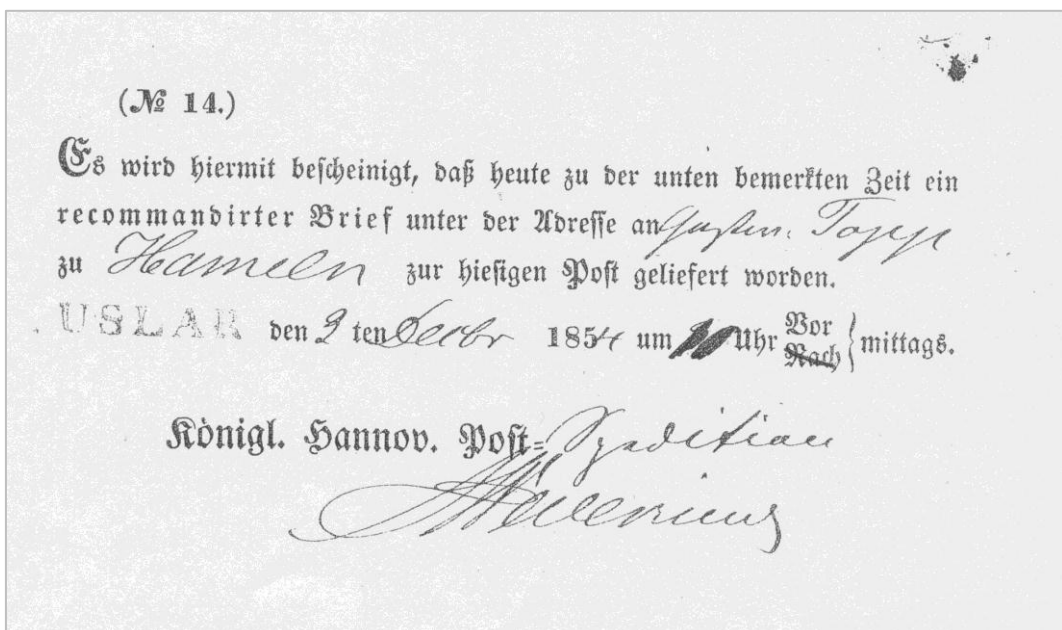 (№ 14.)
Es wird hiermit bescheinigt, daß heute zu der unten bemerkten Zeit ein
recommandirter Brief unter der Adresse an Topp
zu Hameln zur hiesigen Post geliefert worden.
USLAR den 2 ten Decbr 1854 um 10 Uhr Vor
Nach } mittags.
Königl. Hannov. Post-Spedition